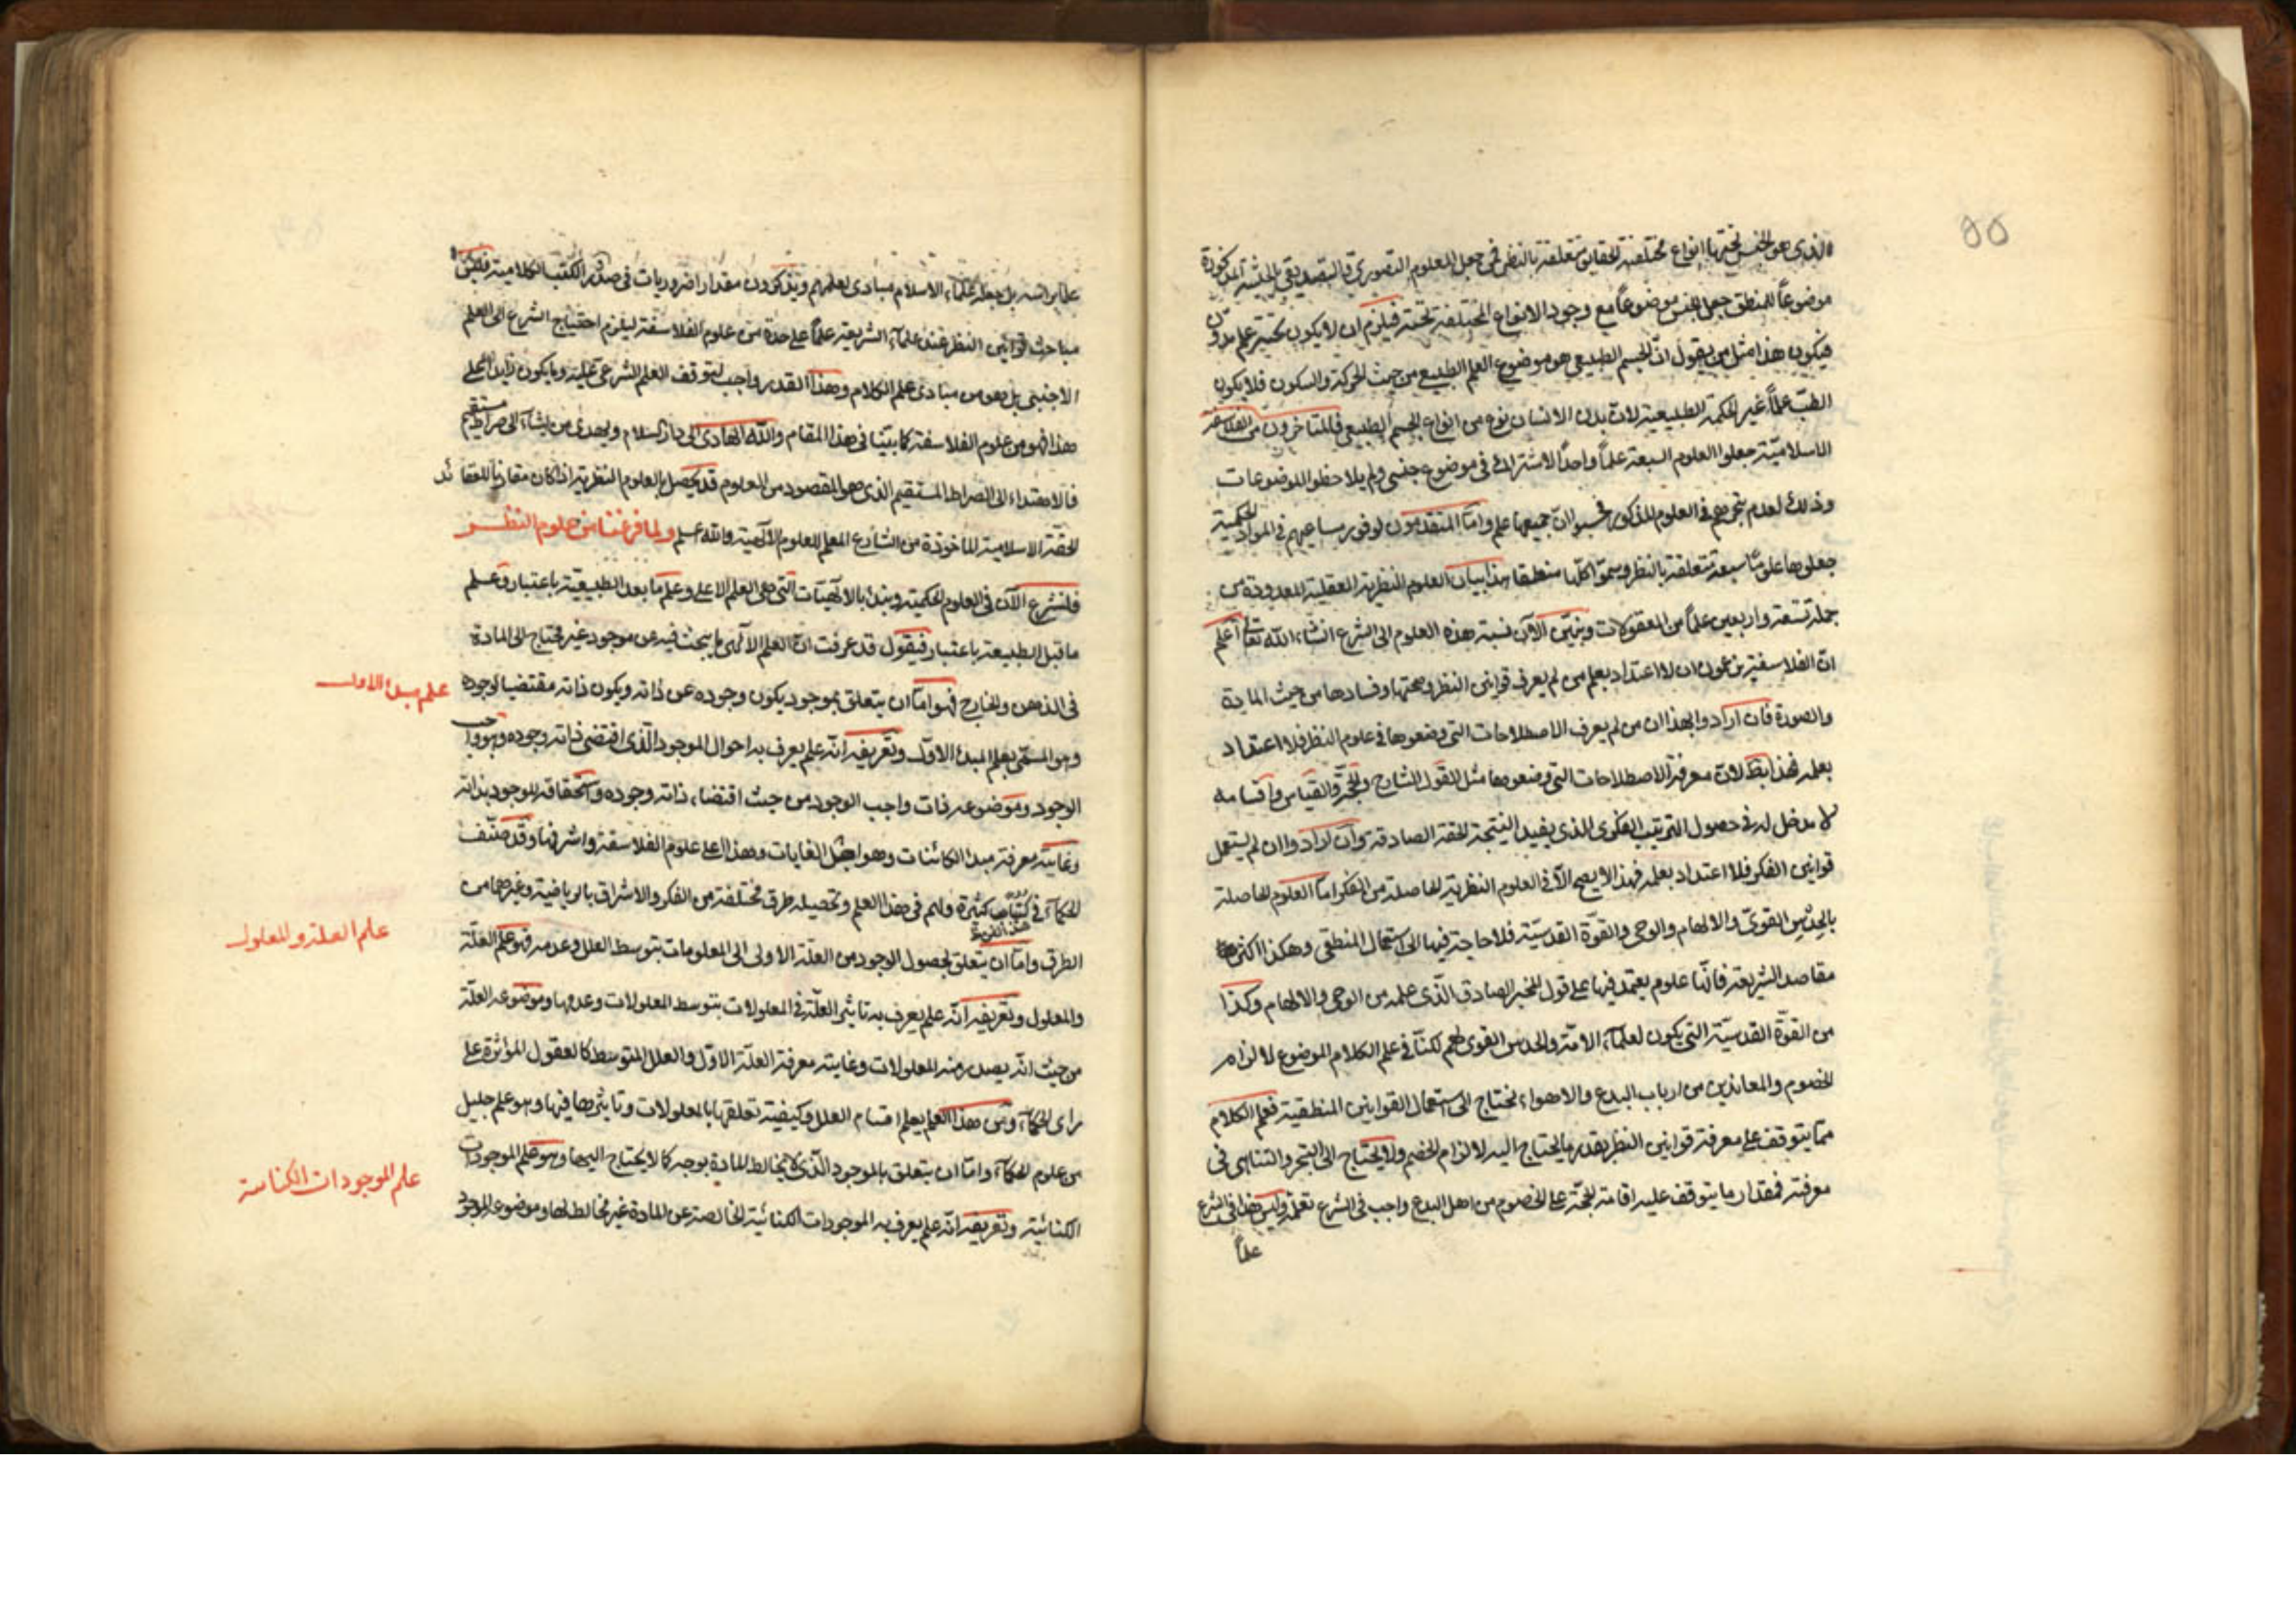 الذي هو الجنس تحتها انواع مختلفة الحقايق متعلقة بالنظر في جعل المعلوم التصوري والتصديقي بالحيثية المذكورة
موضوعاً للمنطق جعل الجنس موضوعاً مع وجود الانواع المختلفة تحته فيلزم ان لا يكون تحته علم مدون
فيكون هذا مثل من يقول ان الجسم الطبيعي هو موضوع العلم الطبيعي من حيث الحركة والسكون فلا يكون
الطب علماً غير الحكمة الطبيعية لان بدن الانسان نوع من انواع الجسم الطبيعي فالمتاخرون من الفلاسفة
الاسلامية جعلوا العلوم السبعة علماً واحداً لاشتراك في موضوع جنسي ولم يلاحظوا الموضوعات
وذلك لعدم تبحرهم في العلوم المذكورة فحسبوا ان جميعها علم واما المتقدمون لوفور مساعيهم في المواد الحكمية
جعلوها علوماً سبعة متعلقة بالنظر وسموا كلها منطقا هذا بيان العلوم النظرية العقلية المعدودة من
جملة تسعة واربعين علماً من المعقولات ونبين الآن نسبة هذه العلوم الى الشرع انشاء الله تعالى اعلم
ان الفلاسفة يزعمون ان لا اعتداد بعلم من لم يعرف قوانين النظر وصحتها وفسادها من حيث المادة
والصورة فان ارادوا بهذا ان من لم يعرف الاصطلاحات التي وضعوها في علوم النظر فلا اعتداد
بعلمه فهذا بط لان معرفة الاصطلاحات التي وضعوها مثل القول الشارح والحجة والقياس واقسامه
لا مدخل له في حصول الترتيب الفكري الذي يفيد النتيجة الحقة الصادقة وان ارادوا ان لم يستعمل
قوانين الفكر فلا اعتداد بعلمه فهذا لا يصح الا في العلوم النظرية الحاصلة من الفكر اما العلوم الحاصلة
بالحدس القوي والالهام والوحي والقوة القدسية فلا حاجة فيها الى استعمال المنطق وهكذا اكثر
مقاصد الشريعة فانها علوم يعتمد فيها على قول المخبر الصادق الذي علمه من الوحي والالهام وكذا
من القوة القدسية التي يكون لعلماء الامة والحدس القوي لهم لكنا في علم الكلام الموضوع لالزام
الخصوم والمعاندين من ارباب البدع والاهواء نحتاج الى استعمال القوانين المنطقية فعلم الكلام
مما يتوقف على معرفة قوانين النظر بقدر ما يحتاج اليه لالزام الخصم ولا يحتاج الى التبحر والتناهي في
معرفته فمقدار ما يتوقف عليه اقامة الحجة على الخصوم من اهل البدع واجب في الشرع تعلمه وليس هذا في الشرع
علماً
علما براسه بل جعله علماء الاسلام مبادي لعلمهم ويذكرون مقدار اضروريات في صدر الكتب الكلامية فليس
مباحث قوانين النظر عند علماء الشريعة علماً على حدة من علوم الفلاسفة ليلزم احتياج الشرع الى العلم
الاجنبي بل هو من مبادي علم الكلام وهذا القدر واجب لتوقف العلم الشرعي عليه وما يكون زايداً على
هذا فهو من علوم الفلاسفة كما بينا في هذا المقام والله الهادي الى دار السلام ويهدي من يشاء الى صراط مستقيم
فالاهتداء الى الصراط المستقيم الذي هو المقصود من العلوم قد يحصل بالعلوم النظرية اذا كان مقارناً للعقائد
الحقة الاسلامية الماخوذة من الشارع المعلم للعلوم الالهية والله اعلم ولما فرغنا من علوم النظر
فلنشرع الآن في العلوم الحكمية ونبدأ بالالهيات التي هي العلم الاعلى وعلم ما بعد الطبيعة باعتبار وعلم
ما قبل الطبيعة باعتبار فيقول قد عرفت ان العلم الالهي ما يبحث فيه عن موجود غير محتاج الى المادة
في الذهن والخارج فهو اما ان يتعلق بموجود يكون وجوده عن ذاته ويكون ذاته مقتضيا لوجوده
علم مبدا الاول
وهو المسمى بعلم المبدأ الاول وتعريفه انه علم يعرف به احوال الموجود الذي اقتضى ذاته وجوده وهو واجب
الوجود وموضوعه ذات واجب الوجود من حيث اقتضاء ذاته وجوده واستحقاقه للوجود بذاته
وغايته معرفة مبدا الكائنات وهو اجل الغايات وهذا اعلى علوم الفلاسفة واشرفها وقد صنف
الحكماء في كتب كثيرة ولهم في هذا العلم وتحصيله طرق مختلفة من الفكر والاشراق بالرياضية وغيرهما من
الطرق واما ان يتعلق بحصول الوجود من العلة الاولى الى المعلومات بتوسط العلل وعدمه فهو علم العلة
علم العلة والمعلول
والمعلول وتعريفه انه علم يعرف به تاثير العلة في المعلولات بتوسط المعلولات وعدمها وموضوعه العلة
من حيث انه يصدر منه المعلولات وغايته معرفة العلة الاول والعلل المتوسط كالعقول المؤثرة على
راى الحكماء ومن هذا العلم يعلم اقسام العلل وكيفية تعلقها بالمعلولات وتاثيرها فيها وهو علم جليل
من علوم الحكماء واما ان يتعلق بالموجود الذي لا يخالط المادة بوجه كما لا يحتاج اليها وهو علم الموجودات
علم الموجودات الكنائية
الكنائية وتعريفه انه علم يعرف به الموجودات الكنائية الخالصة عن المادة غير مخالط لها وموضوعه الموجود